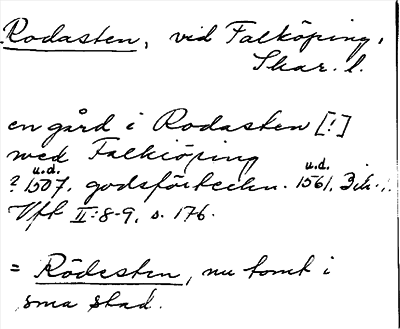 Rodasten, vid Falköping,
Skar. l.
en gård i Rodasten [!]
wed Falkiöping
u.d. u.d.
? 1507, godsförteckn. 1561,
Vft II:8-9, s. 176.
= Rödesten, nu tomt i
sma stad.